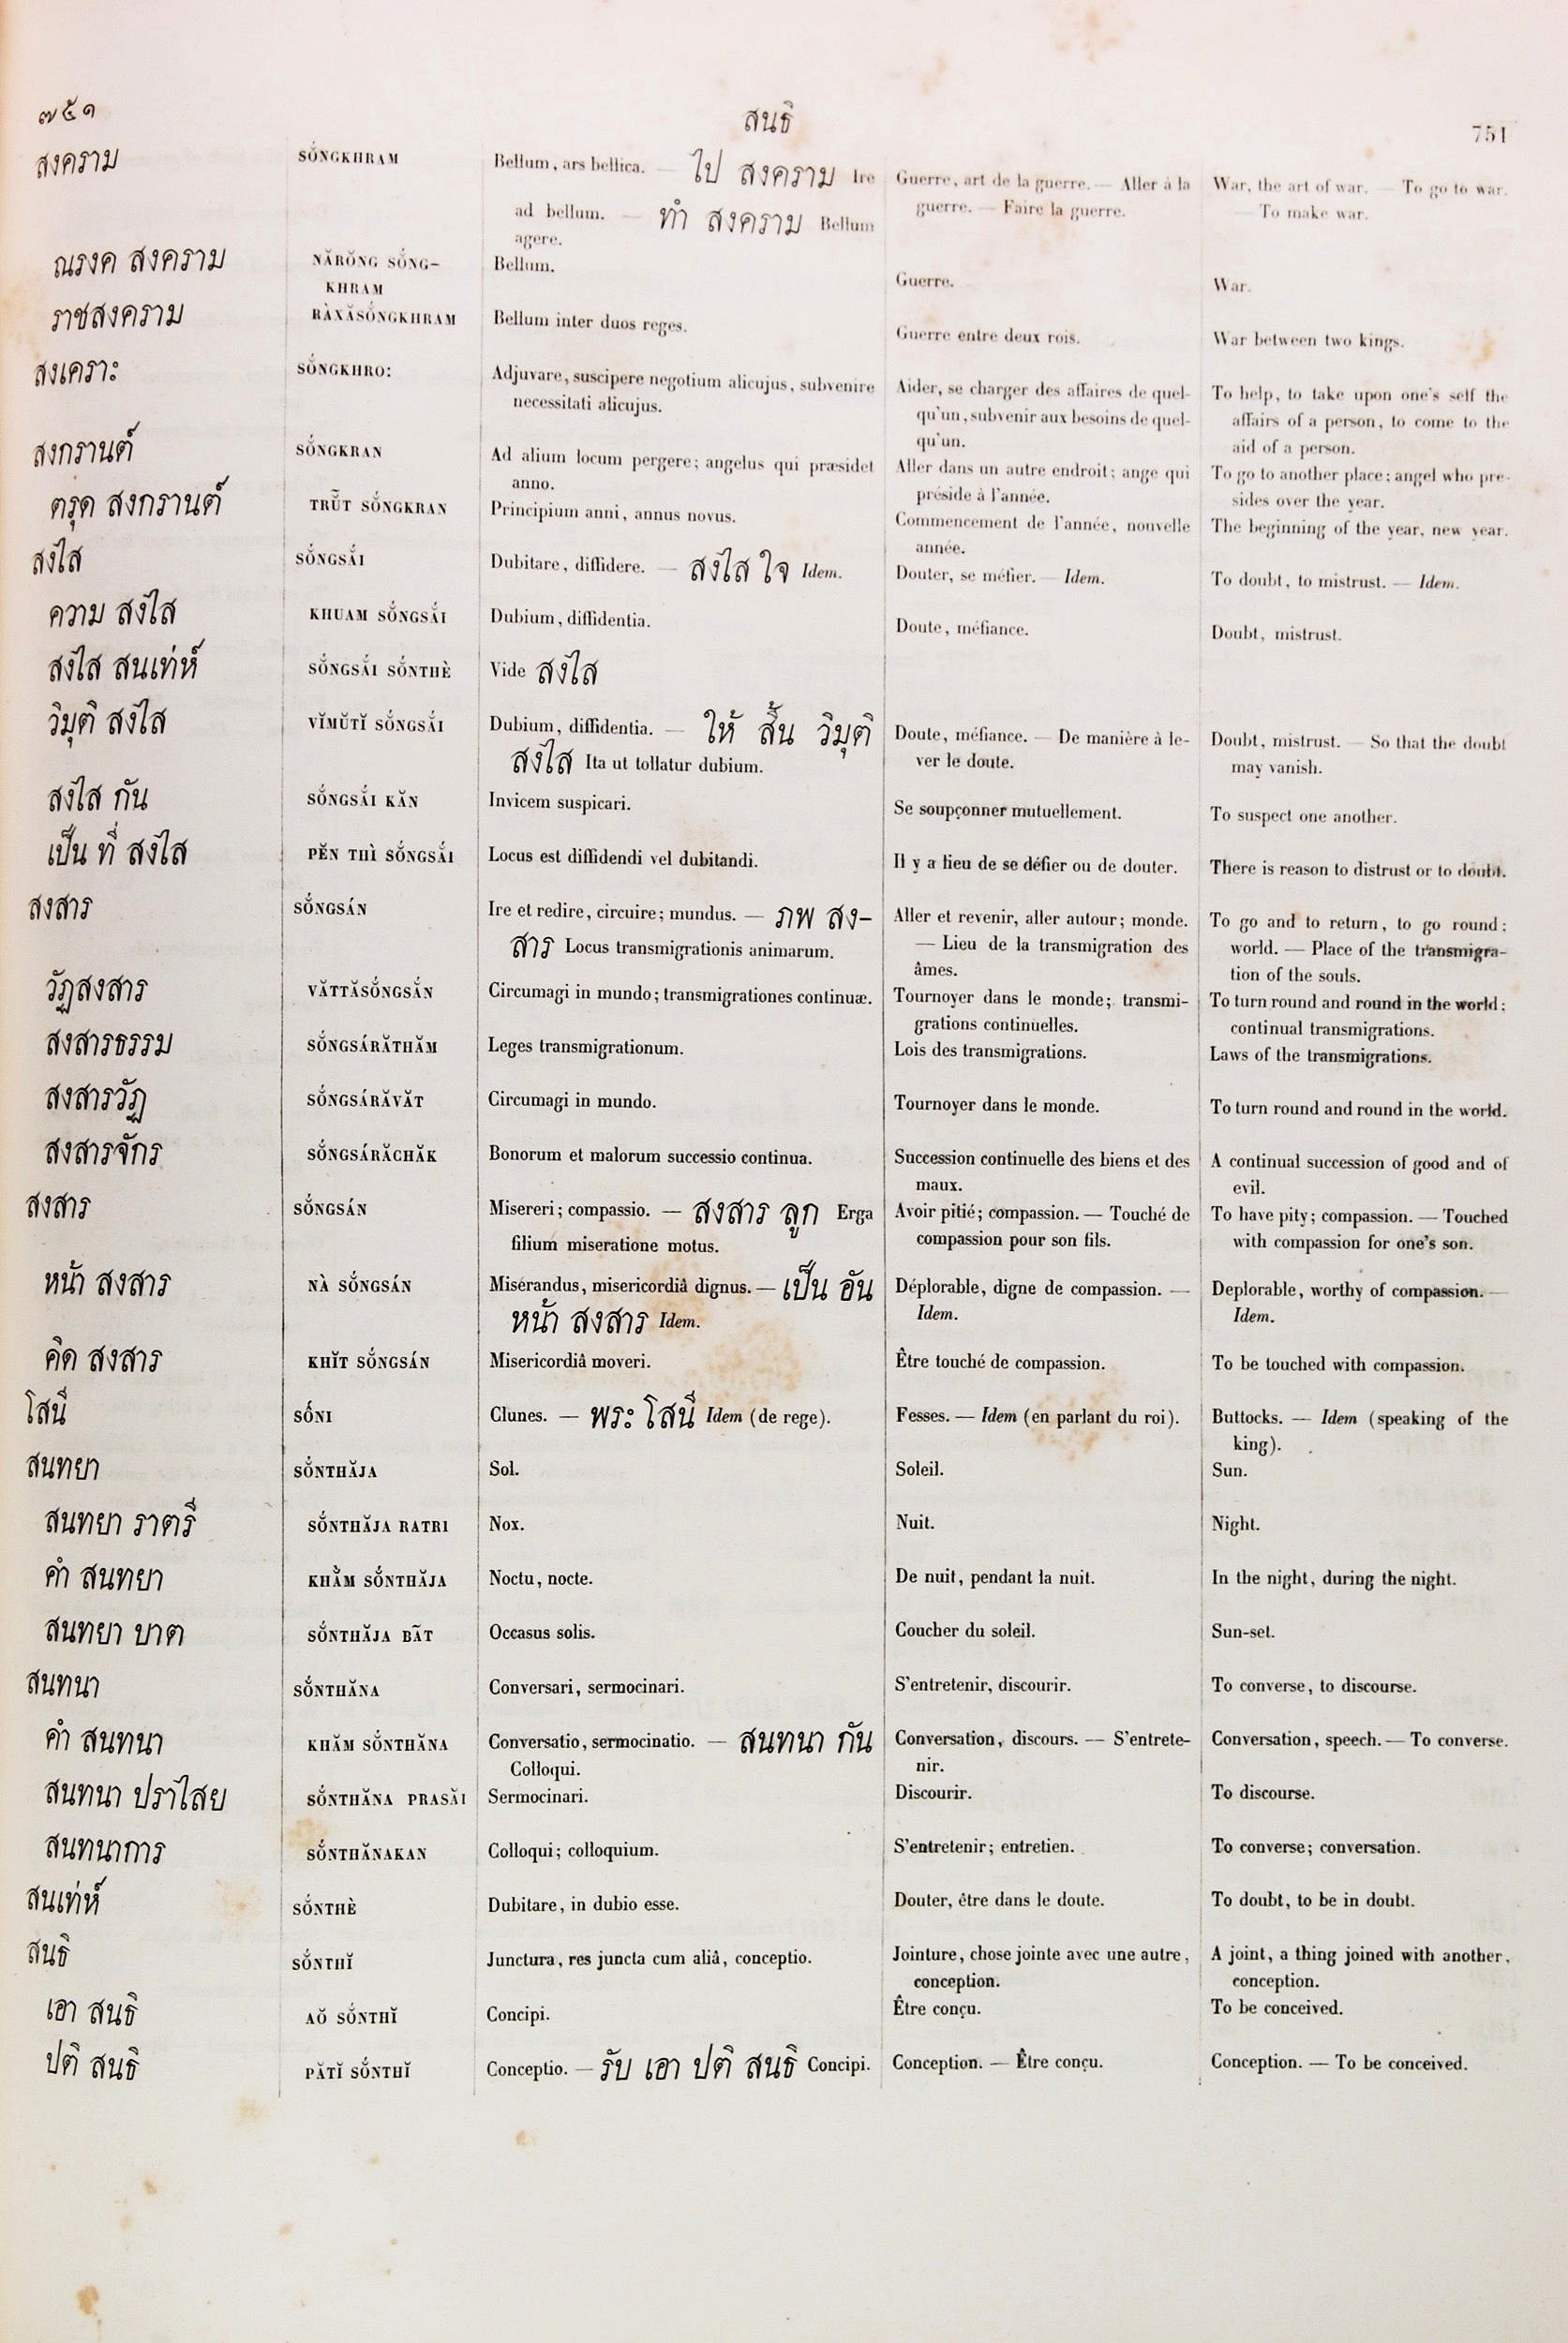 ๗๕๑ สนธิ 751
สงคราม SỐNGKHRAM Bellum, ars bellica. — ไป สงคราม Ire Guerre, art de la guerre. — Aller à la War, the art of war. — To go to war.
ad bellum. — ทำ สงคราม Bellum guerre. — Faire la guerre. — To make war.
agere.
ณรงค สงคราม NĂRŎNG SỐNG- Bellum. Guerre. War.
KHRAM
ราชสงคราม RÀXĂSỐNGKHRAM Bellum inter duos reges. Guerre entre deux rois. War between two kings.
สงเคราะ SỐNGKHRO: Adjuvare, suscipere negotium alicujus, subvenire Aider, se charger des affaires de quel- To help, to take upon one's self the
necessitati alicujus. qu'un, subvenir aux besoins de quel- affairs of a person, to come to the
qu'un. aid of a person.
สงกรานต์ SỐNGKRAN Ad alium locum pergere; angelus qui præsidet Aller dans un autre endroit; ange qui To go to another place; angel who pre-
anno. préside à l'année. sides over the year.
ตรุด สงกรานต์ TRŬT SỐNGKRAN Principium anni, annus novus. Commencement de l'année, nouvelle The beginning of the year, new year.
année.
สงไส SỐNGSẮI Dubitare, diffidere. — สงไส ใจ Idem. Douter, se méfier. — Idem. To doubt, to mistrust. — Idem.
ความ สงไส KHUAM SỐNGSẮI Dubium, diffidentia. Doute, méfiance. Doubt, mistrust.
สงไส สนเท่ห์ SỐNGSẮI SỐNTHÈ Vide สงไส
วิมุติ สงไส VĬMŬTĬ SỐNGSẮI Dubium, diffidentia. — ให้ สิ้น วิมุติ Doute, méfiance. — De manière à le- Doubt, mistrust. — So that the doubt
สงไส Ita ut tollatur dubium. ver le doute. may vanish.
สงไส กัน SỐNGSẮI KĂN Invicem suspicari. Se soupçonner mutuellement. To suspect one another.
เป็น ที่ สงไส PĔN THÌ SỐNGSẮI Locus est diffidendi vel dubitandi. Il y a lieu de se défier ou de douter. There is reason to distrust or to doubt.
สงสาร SỐNGSÁN Ire et redire, circuire; mundus. — ภพ สง- Aller et revenir, aller autour; monde. To go and to return, to go round;
สาร Locus transmigrationis animarum. — Lieu de la transmigration des world. — Place of the transmigra-
âmes. tion of the souls.
วัฏสงสาร VĂTTĂSỐNGSẮN Circumagi in mundo; transmigrationes continuæ. Tournoyer dans le monde; transmi- To turn round and round in the world;
grations continuelles. continual transmigrations.
สงสารธรรม SỐNGSÁRĂTHĂM Leges transmigrationum. Lois des transmigrations. Laws of the transmigrations.
สงสารวัฏ SỐNGSÁRĂVĂT Circumagi in mundo. Tournoyer dans le monde. To turn round and round in the world.
สงสารจักร SỐNGSÁRĂCHĂK Bonorum et malorum successio continua. Succession continuelle des biens et des A continual succession of good and of
maux. evil.
สงสาร SỐNGSÁN Misereri; compassio. — สงสาร ลูก Erga Avoir pitié; compassion. — Touché de To have pity; compassion. — Touched
filium miseratione motus. compassion pour son fils. with compassion for one's son.
หน้า สงสาร NÀ SỐNGSÁN Misérandus, misericordiâ dignus. — เป็น อัน Déplorable, digne de compassion. — Deplorable, worthy of compassion. —
หน้า สงสาร Idem. Idem. Idem.
คิด สงสาร KHĬT SỐNGSÁN Misericordiâ moveri. Être touché de compassion. To be touched with compassion.
โสนี SỐNI Clunes. — พระ โสนี Idem (de rege). Fesses. — Idem (en parlant du roi). Buttocks. — Idem (speaking of the
king).
สนทยา SỐNTHĂJA Sol. Soleil. Sun.
สนทยา ราตรี SỐNTHĂJA RATRI Nox. Nuit. Night.
คำ สนทยา KHẰM SỐNTHĂJA Noctu, nocte. De nuit, pendant la nuit. In the night, during the night.
สนทยา บาต SỐNTHĂJA BÃT Occasus solis. Coucher du soleil. Sun-set.
สนทนา SỐNTHĂNA Conversari, sermocinari. S'entretenir, discourir. To converse, to discourse.
คำ สนทนา KHĂM SỐNTHĂNA Conversatio, sermocinatio. — สนทนา กัน Conversation, discours. — S'entrete- Conversation, speech. — To converse.
Colloqui. nir.
สนทนา ปราไสย SỐNTHĂNA PRASĂI Sermocinari. Discourir. To discourse.
สนทนาการ SỐNTHĂNAKAN Colloqui; colloquium. S'entretenir; entretien. To converse; conversation.
สนเท่ห์ SỐNTHÈ Dubitare, in dubio esse. Douter, être dans le doute. To doubt, to be in doubt.
สนธิ SỐNTHĬ Junctura, res juncta cum aliâ, conceptio. Jointure, chose jointe avec une autre, A joint, a thing joined with another,
conception. conception.
เอา สนธิ AŎ SỐNTHĬ Concipi. Être conçu. To be conceived.
ปติ สนธิ PĂTĬ SỐNTHĬ Conceptio. — รับ เอา ปติ สนธิ Concipi. Conception. — Être conçu. Conception. — To be conceived.